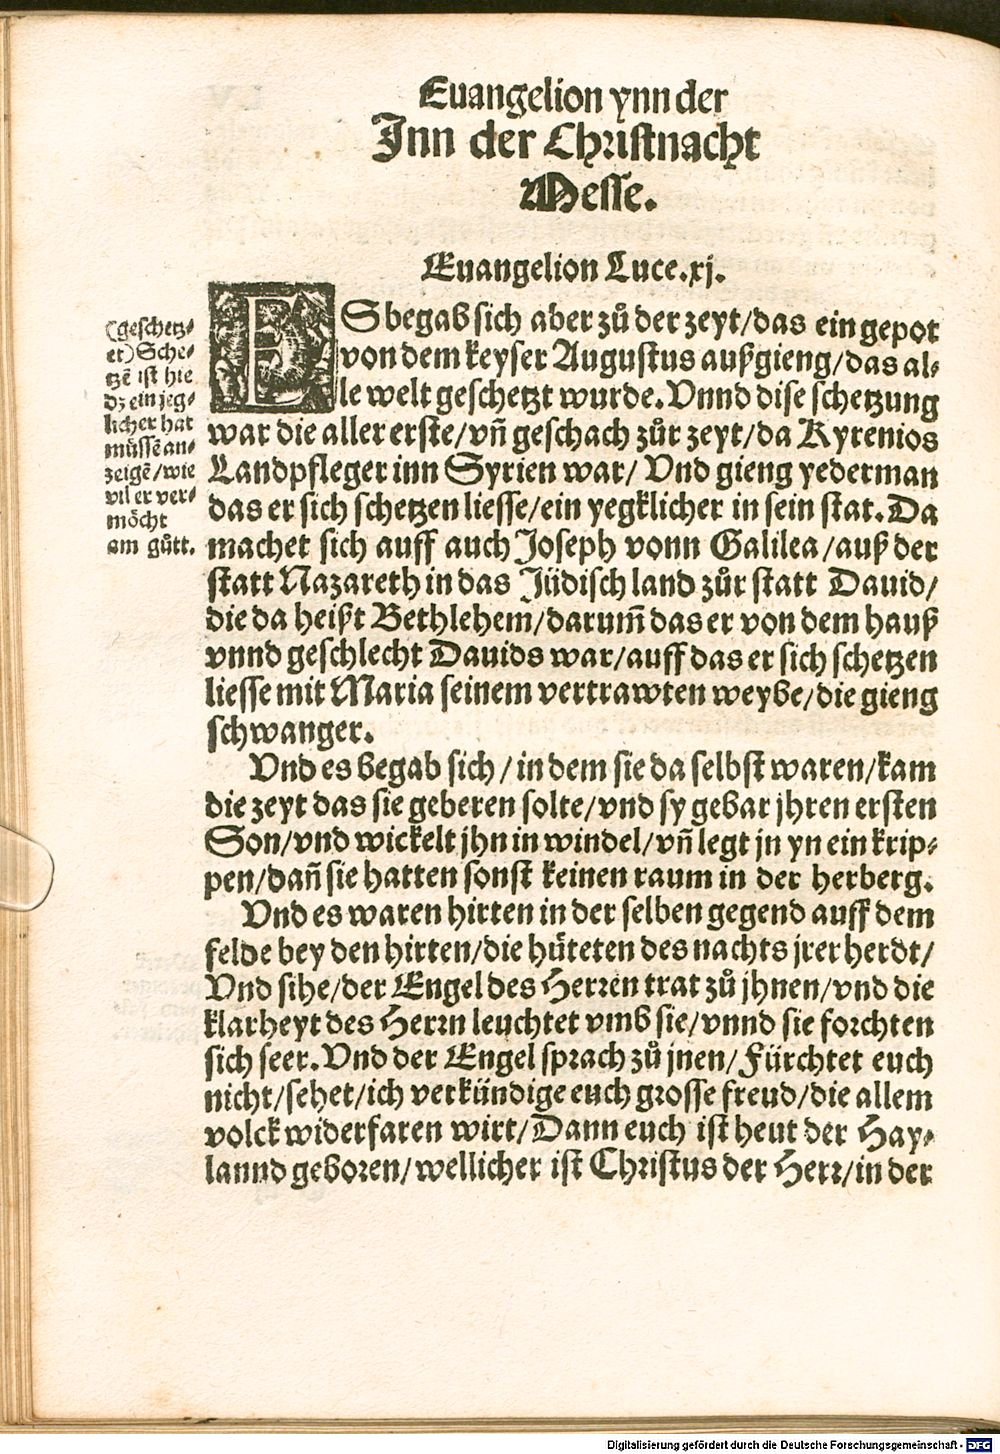 Euangelion ynn der
Inn der Christnacht
Messe.
Euangelion Luce.xj.
(geschetz⸗
et) Sche⸗
tzē ist hie
dz ein jeg⸗
licher hat
müssē an⸗
zeigē/wie
vil er ver⸗
möcht
am gůtt.
ES begab sich aber zů der zeyt/das ein gepot
von dem keyser Augustus außgieng/das al⸗
le welt geschetzt wurde. Vnnd dise schetzung
war die aller erste/vñ geschach zůr zeyt/da Kyrenios
Landpfleger inn Syrien war/ Vnd gieng yederman
das er sich schetzen liesse/ein yegklicher in sein stat. Da
machet sich auff auch Joseph vonn Galilea/auß der
statt Nazareth in das Jüdisch land zůr statt Dauid/
die da heißt Bethlehem/darum̃ das er von dem hauß
vnnd geschlecht Dauids war/auff das er sich schetzen
liesse mit Maria seinem vertrawten weybe/die gieng
schwanger.
Vnd es begab sich/in dem sie da selbst waren/kam
die zeyt das sie geberen solte/vnd sy gebar jhren ersten
Son/vnd wickelt jhn in windel/vñ legt jn yn ein krip⸗
pen/dañ sie hatten sonst keinen raum in der herberg.
Vnd es waren hirten in der selben gegend auff dem
felde bey den hirten/die hüteten des nachts jrer herdt/
Vnd sihe/der Engel des Herren trat zů jhnen/vnd die
klarheyt des Herrn leuchtet vmb sie/vnnd sie forchten
sich seer. Vnd der Engel sprach zů jnen/Fürchtet euch
nicht/sehet/ich verkündige euch grosse freud/die allem
volck widerfaren wirt/Dann euch ist heut der Hay⸗
lannd geboren/wellicher ist Christus der Herr/in der
Digitalisierung gefördert durch die Deutsche Forschungsgemeinschaft - DFG